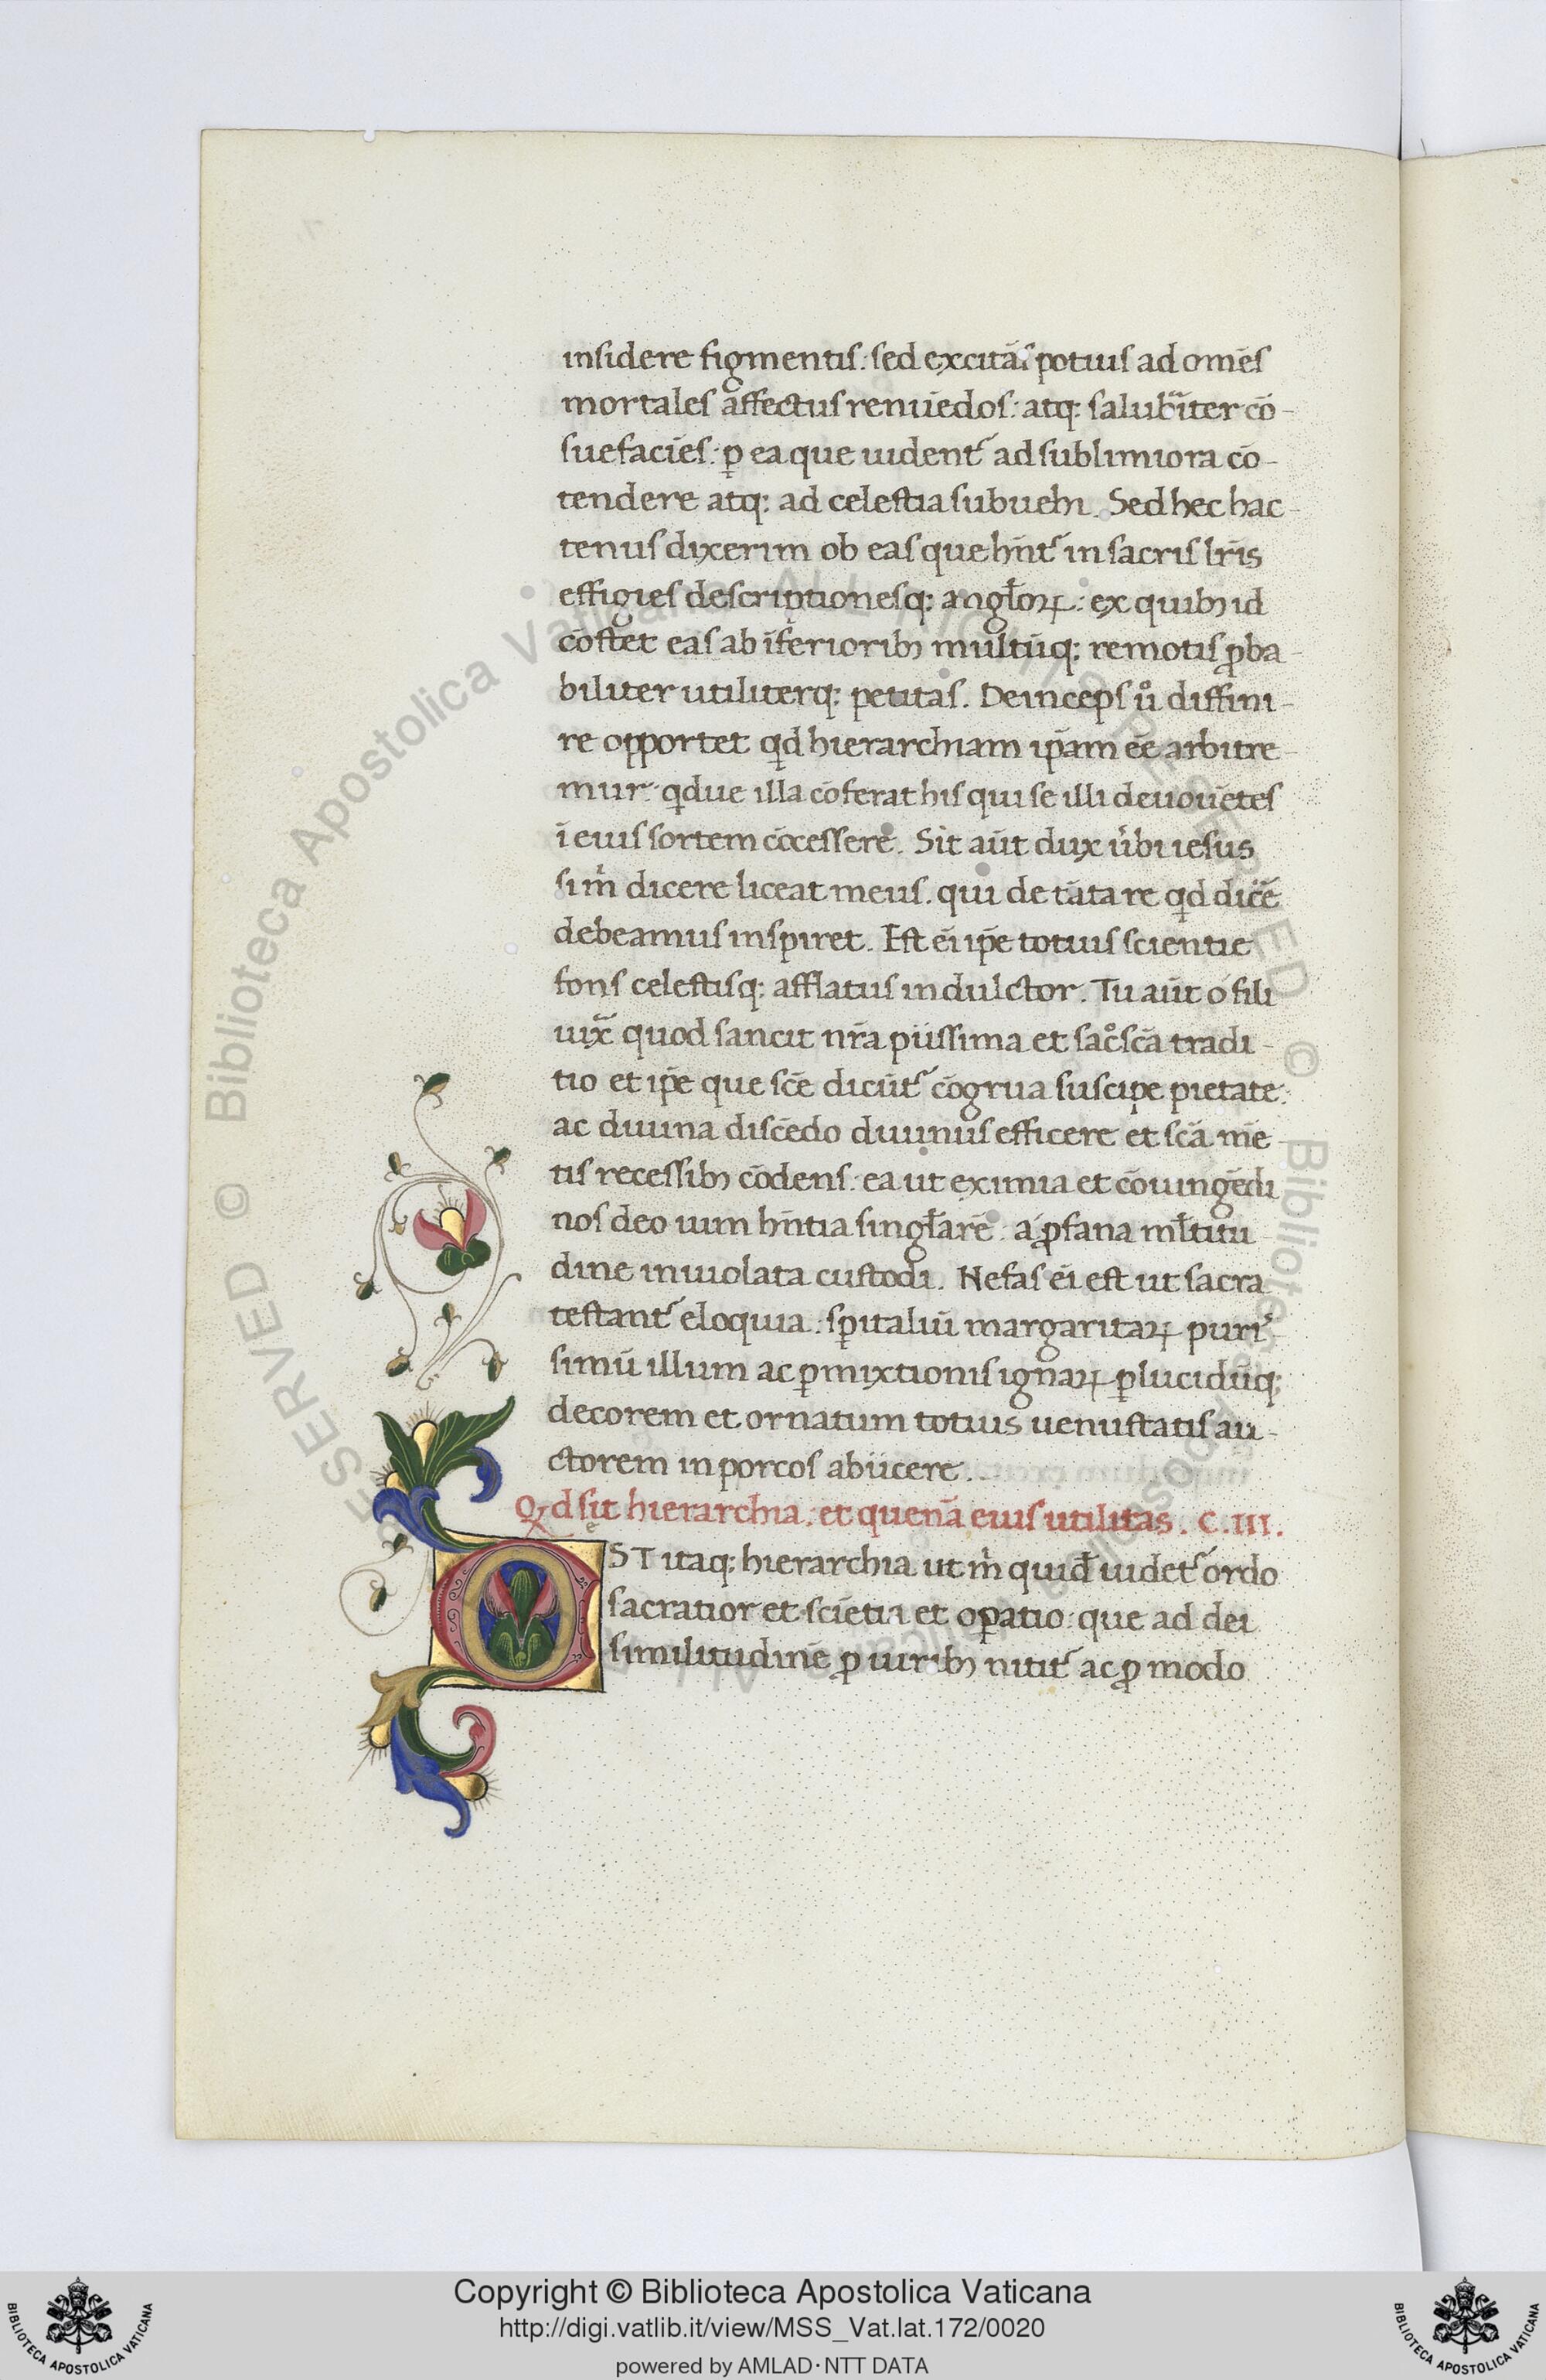 insidere figmentis: sed excitãs potius ad omẽs
mortales affectus renuẽdos: atq; salubĩter cõ-
suefaciẽs: ꝑ ea que uident᷑ ad sublimiora cõ-
tendere atq; ad celestia subuehi. Sed hec hac-
tenus dixerim ob eas que hñt᷑ in sacris lr̃is
effigies descriptionesq; angl̃oꝝ: ex quibꝫ id
cõstet eas ab ĩferioribꝫ multũq; remotis ꝓba-
biliter utiliterq; petitas. Deinceps uͦ diffini-
re opportet qͥd hierarchiam ip̃am eẽ arbitre-
mur: qͥdue illa cõferat his qui se illi deuouẽtes
ĩ eius sortem cõcessere. Sit aũt dux ũbi iesus
si mͥ dicere liceat meus. qui de tãta re qͥd dicẽ
debeamus inspiret. Est ẽi ip̃e totius scientie
fons celestisq; afflatus indulctor. Tu aũt o fili
uixͣ quod sancit nr̃a piissima et sacͦscã tradi-
tio et ip̃e que scẽ dicũt᷑ cõgrua suscipe pietate:
ac diuina discẽdo diuinus efficere et scã mẽ-
tis recessibꝫ cõdens: ea ut eximia et cõiungẽdi
nos deo uim hñtia singl̃arẽ: a ꝓfana ml̃titu-
dine inuiolata custodi. Nefas ẽi est ut sacra
testant᷑ eloquia: sp̃italiũ margaritaꝝ puris-
simũ illum ac ꝑmixtionis ignaꝝ ꝑlucidũq;
decorem et ornatum totius uenustatis au-
ctorem in porcos abiicere.
Qͥd sit hierarchia: et quenã eius utilitas. C. III.
EST itaq; hierarchia ut mͥ quid̃ uidet᷑ ordo
sacratior et sciẽtia et oꝑatio: que ad dei
similitudinẽ ꝓ uiribꝫ nitit᷑ ac ꝓ modo
Copyright © Biblioteca Apostolica Vaticana
http://digi.vatlib.it/view/MSS_Vat.lat.172/0020
powered by AMLAD·NTT DATA